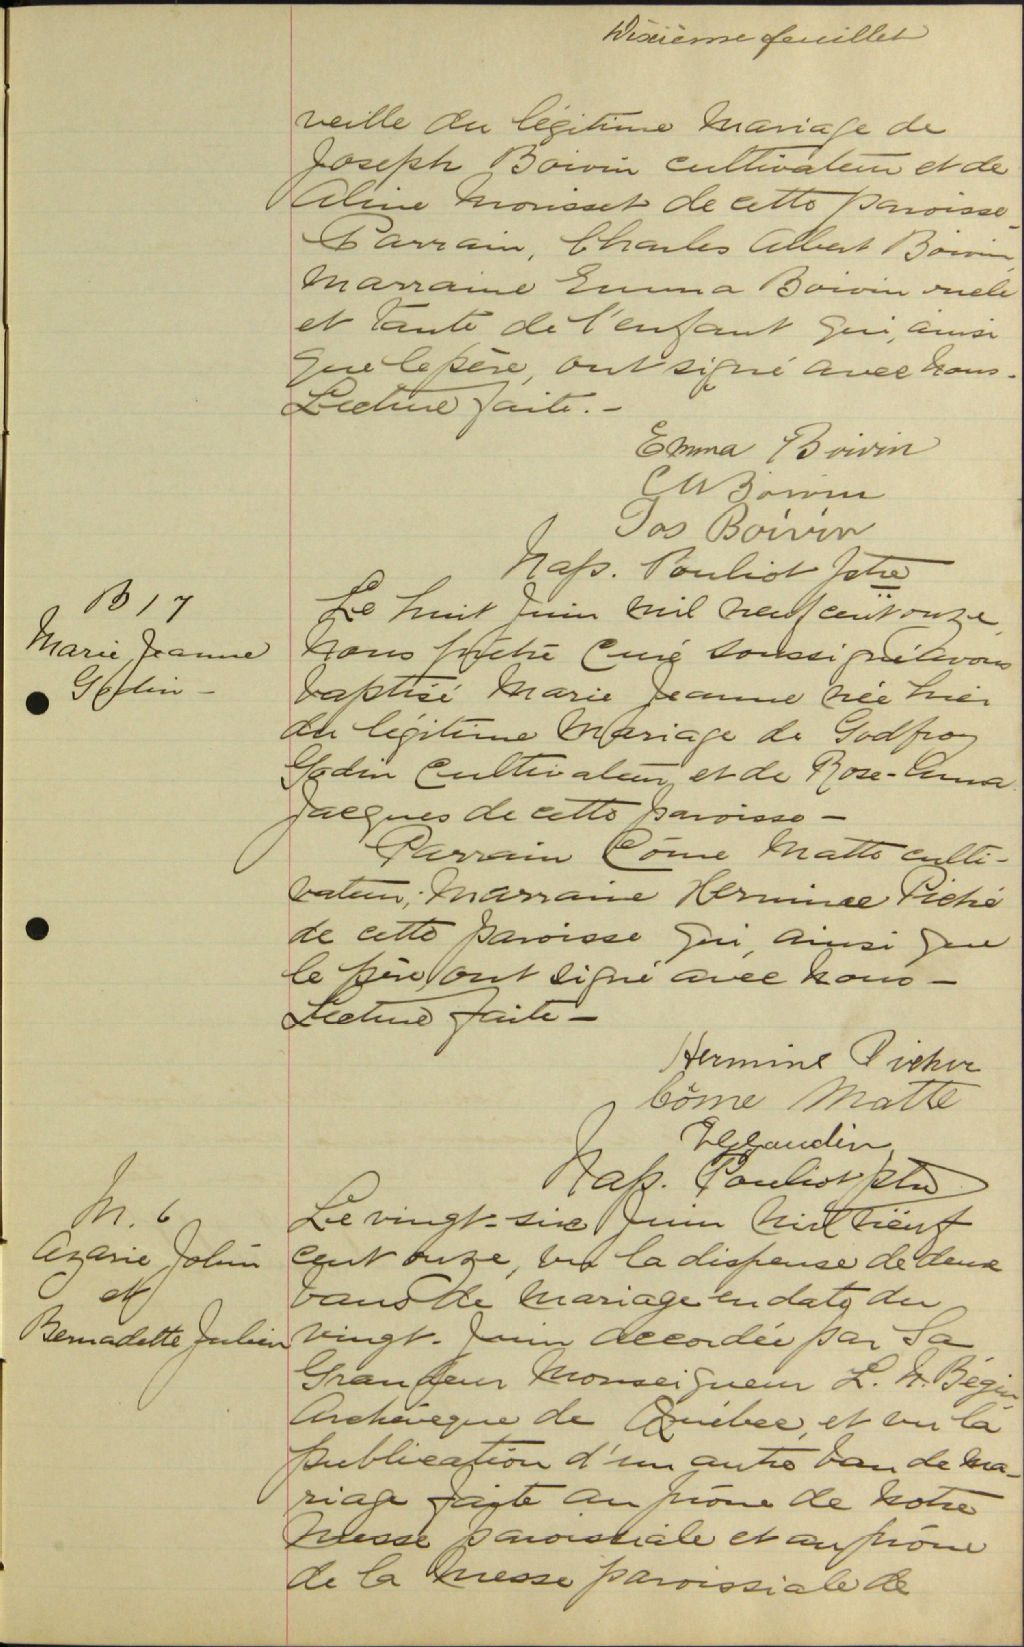 Dixième feuillet
veille du légitime Mariage de
Joseph Boivin cultivateur et de
Aline Morisset de cette paroisse -
Parrain, Charles Albert Boivin,
Marraine Emma Boivin oncle
et tante de l'enfant qui, ainsi
que le père, ont signé avec nous -
Lecture faite. -
Emma Boivin
CA Boivin
Jos Boivin
Nap. Pouliot Ptre
B 17
Marie Jeanne
Godin -
Le huit Juin mil neuf cent onze,
Nous prêtre Curé soussigné avons
baptisé Marie Jeanne née hier
du légitime Mariage de Godfroy
Godin Cultivateur et de Rose-Anna
Jacques de cette paroisse -
Parrain Côme Matte culti-
vateur, Marraine Herminee Piché
de cette paroisse qui, ainsi que
le père, ont signé avec Nous -
Lecture faite -
Hermine Picher
Côme Matte
Gaudin
Nap. Pouliot ptre
M. 6
Azarie Jobin
et
Bernadette Julien
Le vingt-six Juin Mil neuf
cent onze, vu la dispense de deux
bans de Mariage en date du
vingt. Juin accordée par Sa
Grandeur Monseigneur L. N. Bégin,
Archéveque de Québec, et vu la
publication d'un autre ban de Ma-
riage faite au prône de Notre
Messe paroissiale et au prône
de la Messe paroissiale de